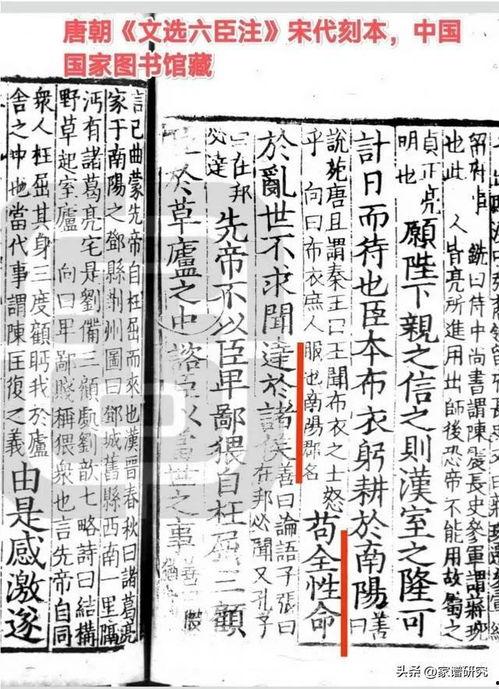 唐朝《文选六臣注》宋代刻本，中国
国家图书馆藏
銑曰侍中尚書謂陳震長史參軍謂蔣琬
也此 人皆亮所進用出師後恐帝不能用故勸之
貞正亮
明也 願陛下親之信之則漢室之隆可
計日而待也臣本布衣躬耕於南陽 善曰
說苑唐且謂秦王曰王聞布衣之士怒
乎 向曰布衣庶人服也南陽郡名 苟全性命
於亂世不求聞達於諸侯 善曰論語子張曰
在邦必聞又孔子
曰在邦
必達 先帝不以臣卑鄙猥自枉屈三顧
於草廬之中諮臣以當世之事 善曰
言己曲蒙先帝自枉屈而來也漢晉春秋曰諸葛亮
家于南陽之鄧縣荊州圖曰鄧城舊縣西南一里隔
沔有諸葛亮宅是劉備三顧處劉歆七略詩曰結構
野草起室廬 向曰卑鄙賤稱猥衆也言先帝自同
衆人枉屈其身三度顧眄我於廬
舍之中也當代事謂陳匡復之義 由是感激遂
头条 @家谱研究